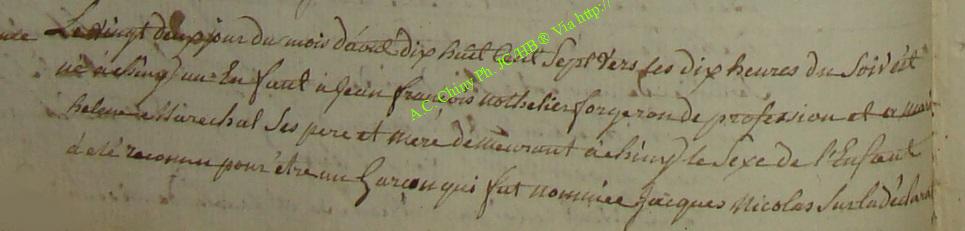 Le vingt deux jour du mois d'aout dix huit Cent Sept Vers les dix heures du Soir ést
né à chiny un Enfant à Jean françois nothelier forgeron de profession et a mari
helene Marechal Ses pere et mere demeurant à chiny le Sexe de l'Enfant
à eté reconnu pour être un Garçon qui fut nommée Jacques Nicolas Sur la déclarat
A.C. Chiny Ph. JC HB ® Via http://